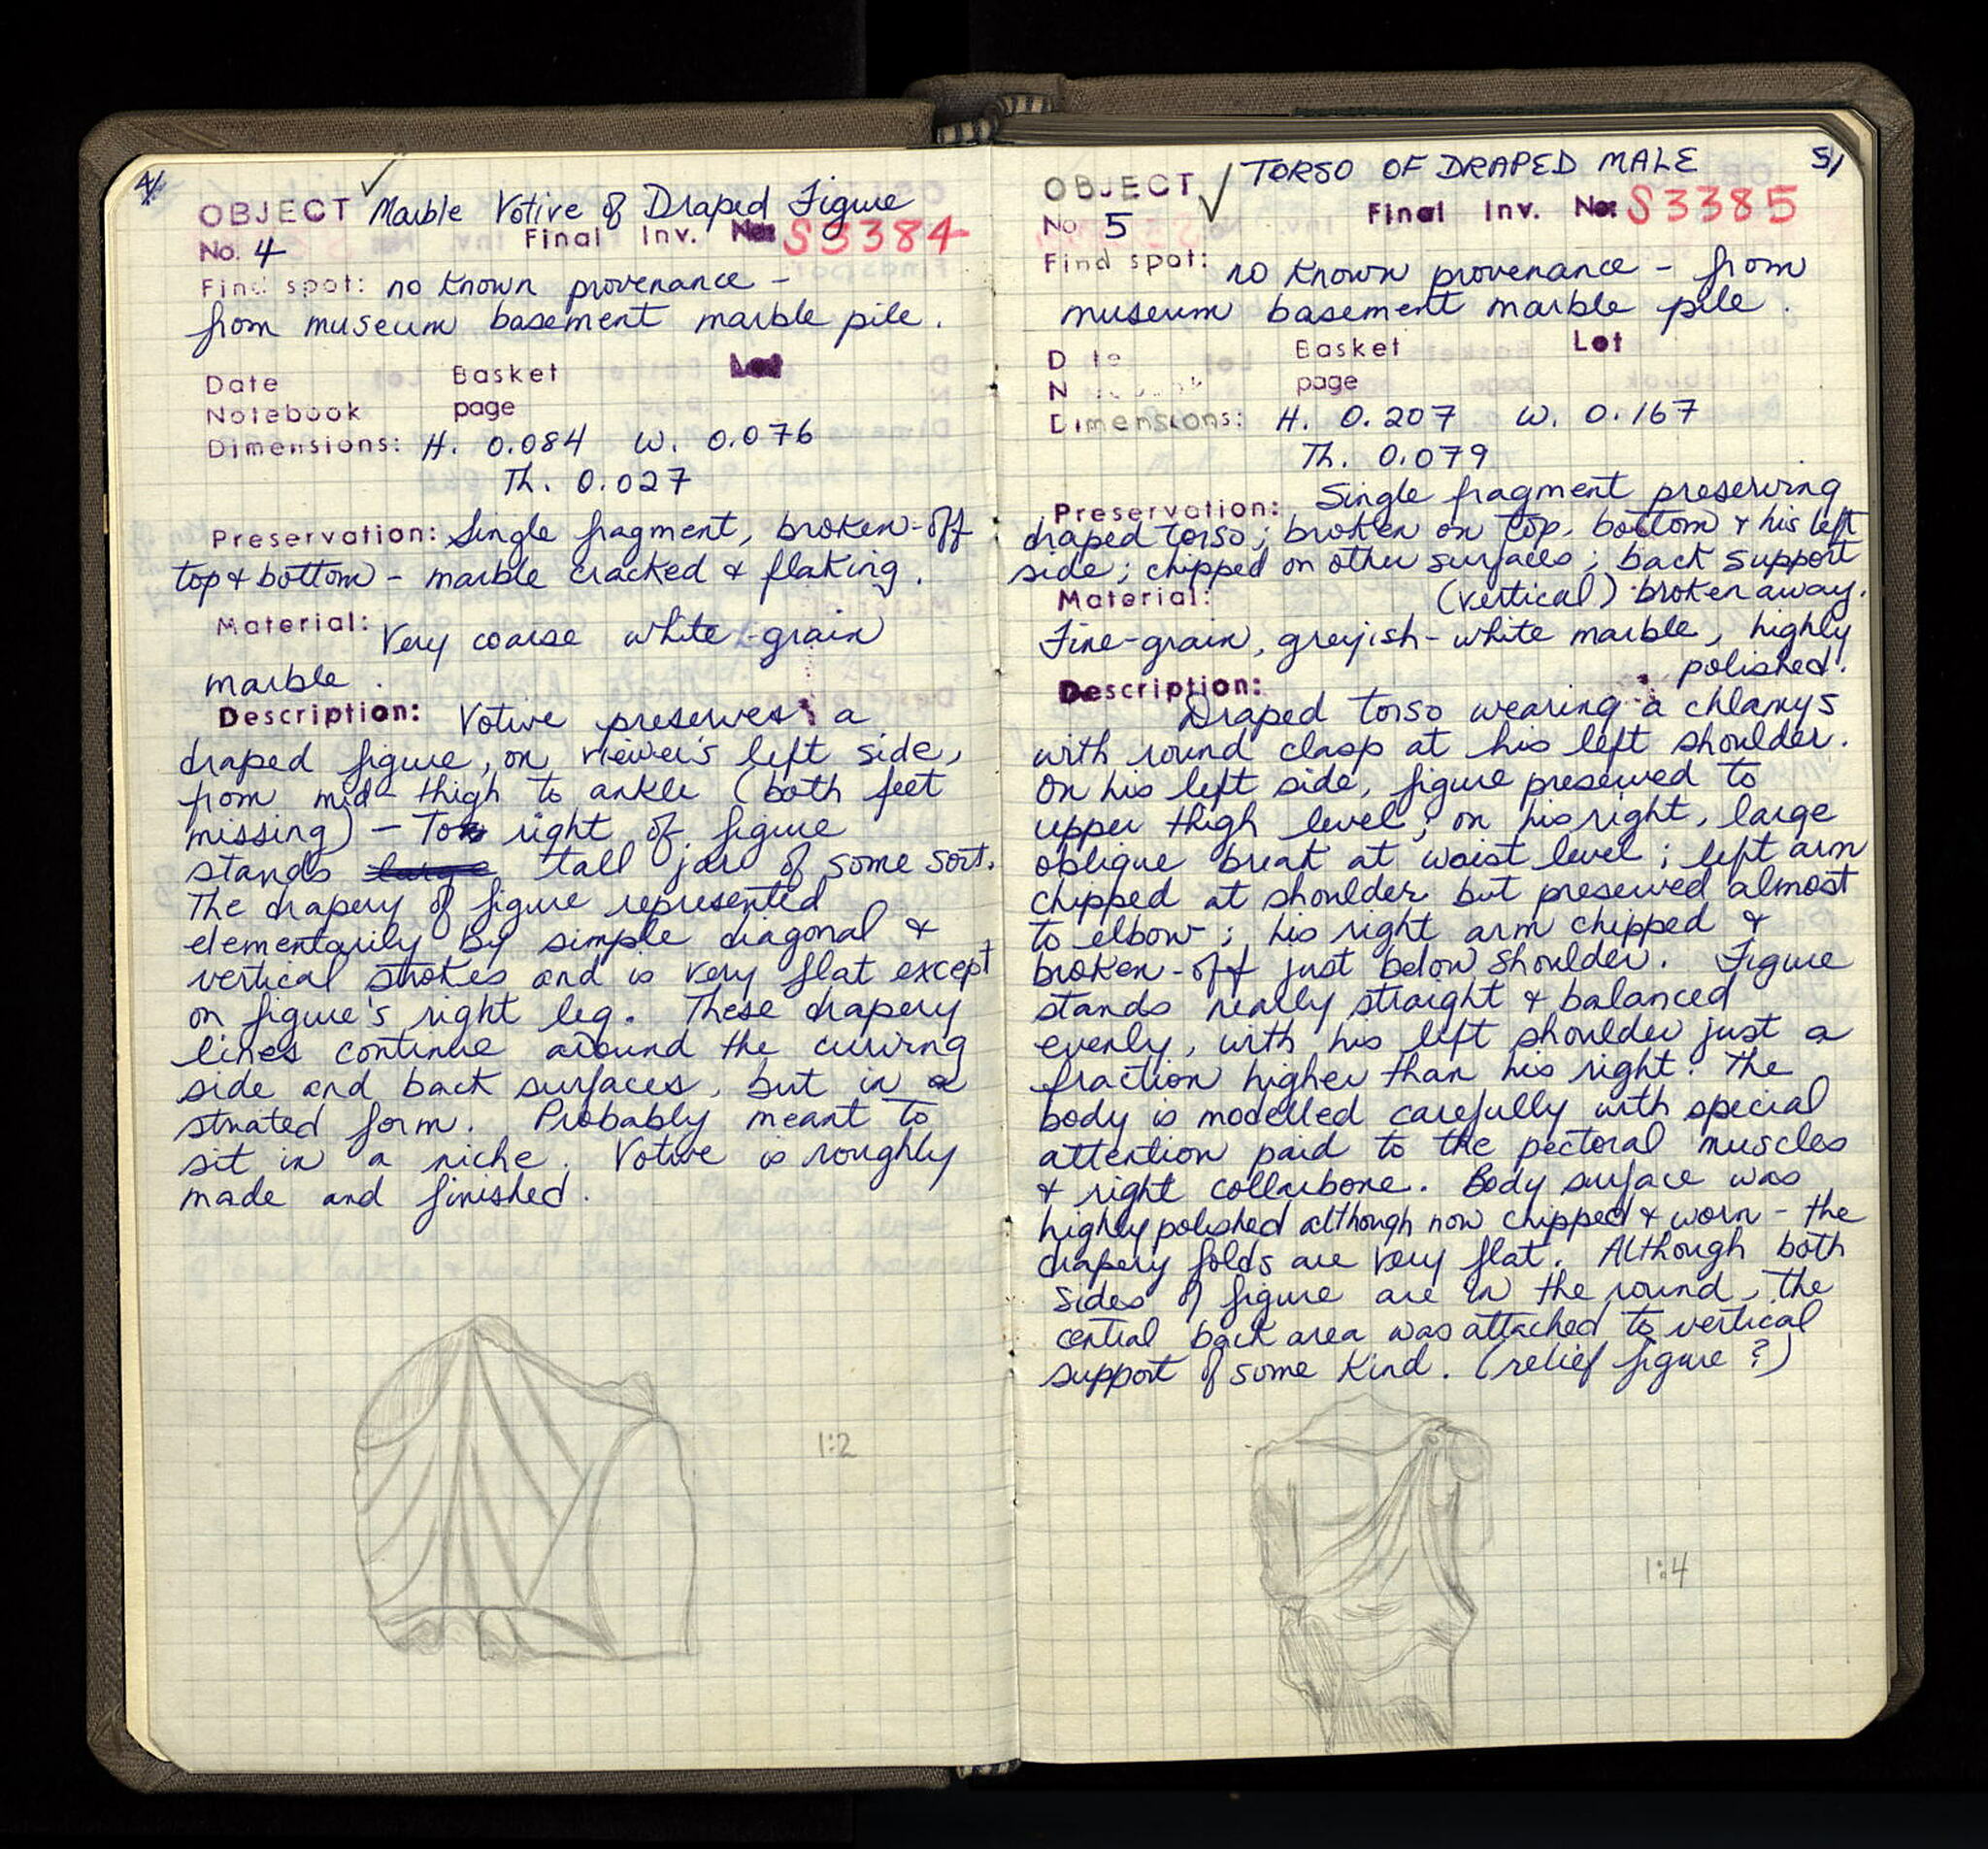 4/
OBJECT Marble Votive of Draped Figure
No. 4 Final Inv. No: S3384
Find spot: no known provenance -
from museum basement marble pile.
Date Basket Lot
Notebook page
Dimensions: H. 0.084 W. 0.076
Th. 0.027
Preservation: Single fragment, broken-off
top & bottom - marble cracked & flaking.
Material: Very coarse white-grain
marble.
Description: Votive preserves a
draped figure, on viewer's left side,
from mid-thigh to ankle (both feet
missing) - To right of figure
stands large tall jar of some sort.
The drapery of figure represented
elementarily by simple diagonal &
vertical strokes and is very flat except
on figure's right leg. These drapery
lines continue around the curving
side and back surfaces, but in a
striated form. Probably meant to
sit in a niche. Votive is roughly
made and finished.
1:2
5/
OBJECT TORSO OF DRAPED MALE
No. 5 Final Inv. No: S3385
Find spot: no known provenance - from
museum basement marble pile.
Date Basket Lot
N page
Dimensions: H. 0.207 W. 0.167
Th. 0.079
Preservation: Single fragment preserving
draped torso; broken on top, bottom & his left
side; chipped on other surfaces; back support
(vertical) broken away.
Material:
Fine-grain, greyish-white marble, highly
polished.
Description:
Draped torso wearing a chlamys
with round clasp at his left shoulder.
On his left side, figure preserved to
upper thigh level; on his right, large
oblique break at waist level; left arm
chipped at shoulder but preserved almost
to elbow; his right arm chipped &
broken-off just below shoulder. Figure
stands nearly straight & balanced
evenly, with his left shoulder just a
fraction higher than his right. The
body is modelled carefully with special
attention paid to the pectoral muscles
& right collarbone. Body surface was
highly polished although now chipped & worn - the
drapery folds are very flat. Although both
sides of figure are in the round, the
central back area was attached to vertical
support of some kind. (relief figure?)
1:4